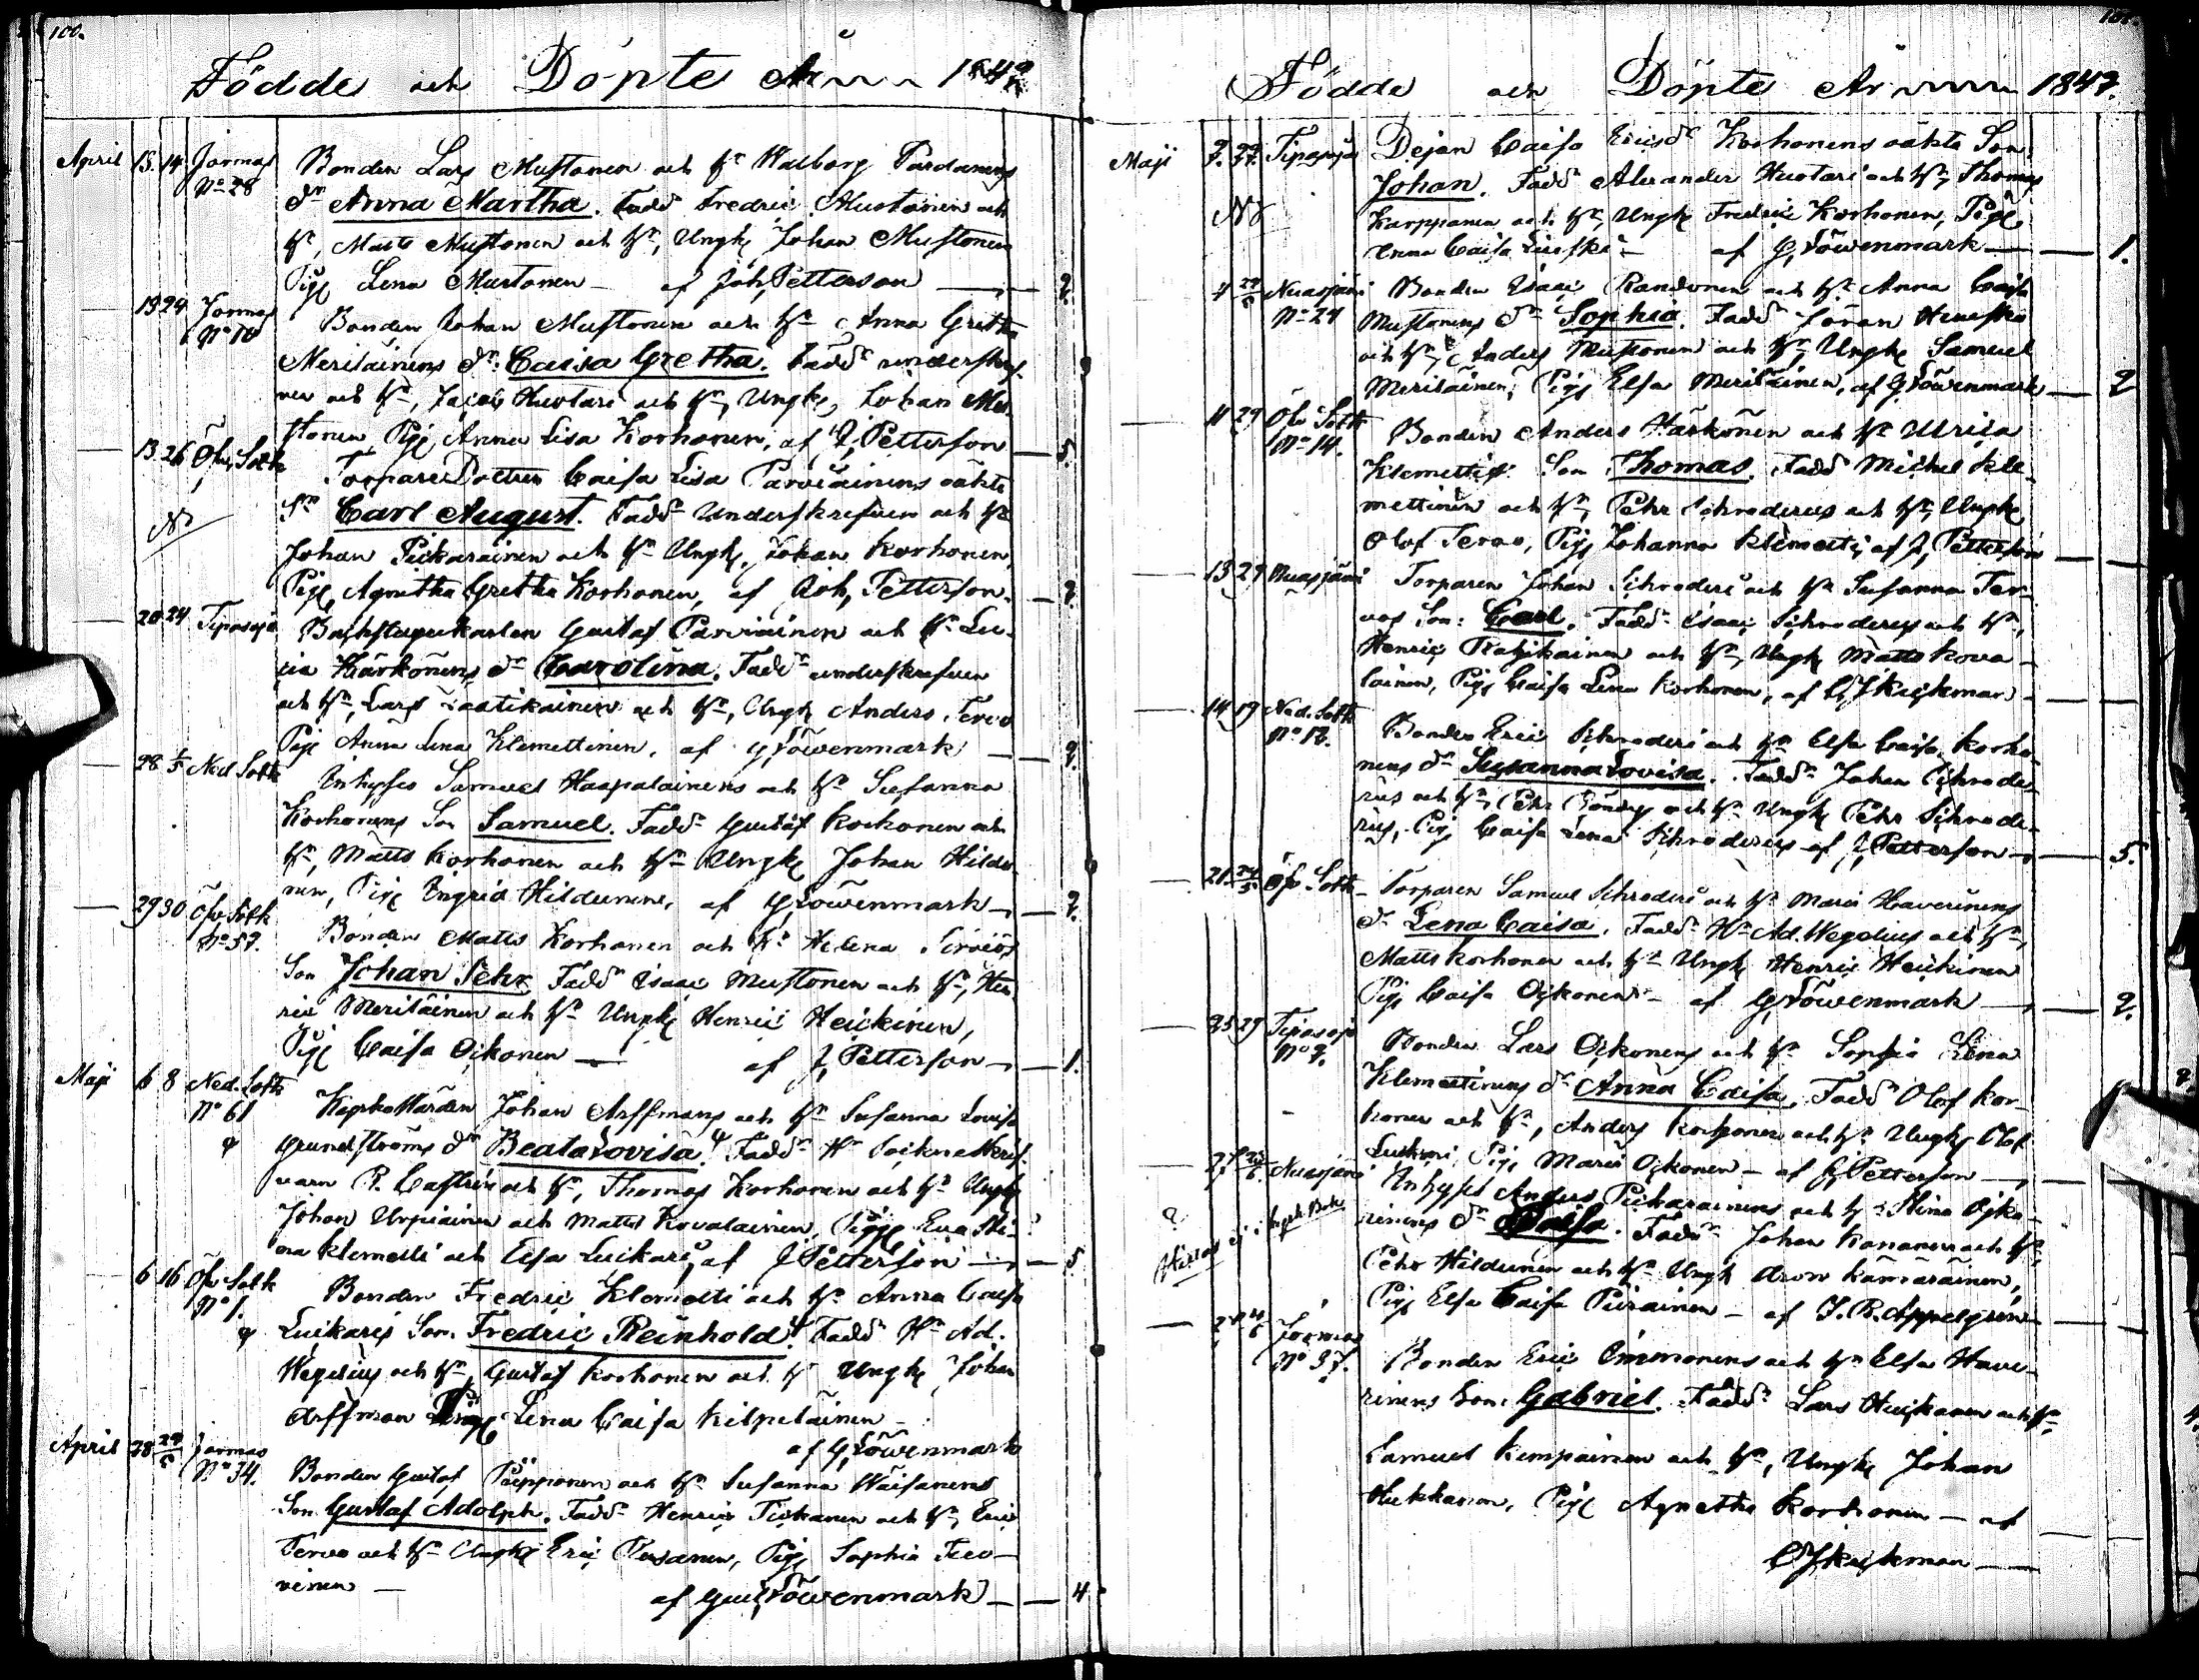 100.
Födde och Döpte År 1847
April 13. 14 Jormas Bonden Lars Mustonen och Hu Walborg Pardanens
No 28 dr Anna Martha. Fadd Fredric Mustonen och
Hu, Matts Mustonen och Hu, Ungk Johan Mustonen
Pig Lena Mustonen – af Joh, Petterson — 2.
— 19 24 Jormas Bonden Johan Mustonen och Hu Anna Gretha
No 10 Meriläinens dr: Caisa Gretha. Fadd underskref-
ven och Hu, Jacob Huotari och Hu, Ungk, Johan Mu-
stonen, Pig Anna Lisa Korhonen, af J, Petterson — 5.
— 13 26 Öfv. Sotk Torpare Dottren Caisa Lisa Parviainens oäkta
No Sn Carl August. Fadd underskrefven och Hu
Johan Pickarainen och Hu Ungk, Johan Korhonen,
Pig Agnetha Gretha Korhonen, af Joh, Petterson.
— 20 24 Tipasoja Backstugukarlen Gustaf Parviainen och Hu Lu-
cia Härkönens dr Carolina. Fadd underskrefven
och Hu, Lars Laatikainen och Hu, Ungk Anders Tervo
Pig Anna Lena Klemettinen, af G, Löwenmark —
— 28 1/5 Ned Sotk Inhyses Samuel Haapalainens och Hu Susanna
Korhonens Son Samuel. Fadd Gustaf Korhonen och
Hu, Matts Korhonen och Hu Ungk Johan Hildu-
nen, Pig Ingrid Hildunen, af G, Löwenmark —
— 29 30 Öfv Sotk Bonden Matts Korhonen och Hu Helena Tervos
No 57. Son Johan Pehr Fadd Isaac Mustonen och Hu, Hen
ric Meriläinen och Hu Ungk Henric Heickinen,
Pig Caisa Oikonen — af J, Petterson — 1.
Maji 6 8 Ned. Sotk Johan Arffmans och Hu Susanna Lovisa
No 61 Grundströms dr Beata Lovisa. Fadd Hr
R. Castrén och Hu, Thomas Korhonen och Hu Ungk
Johan Urpiainen och Matts Kovalainen, Pig Eva Sti-
na Klemetti och Elsa Luckari, af J Petterson — 5
6 16 Öfv Sotk Bonden Fredric Klemetti och Hu Anna Caisa
No 1. Luikaris Son. Fredric Reinhold. Fadd Hr Ad.
Wegelius och Hu, Gustaf Korhonen och Hu Ungk Johan
Arffman Pig Lena Caisa Kilpeläinen –
af G, Löwenmark
April 28 Jormas Bonden Gustaf Piipponen och Hu Susanna Wäisänens
No 34. Son Gustaf Adolph. Fadd Henric Tiskanen och Hu, Eric
Tervo och Hu Ungk Eric, Pig Sophia Tier-
vinen — af Gust, Löwenmark — 4
Födde och Döpte År 1847.
Maji Tipasoja Dejan Caisa Ericsdr Korhonens oäkta Son
Johan. Fadd Alexander Huotari och Hu, Thomas
No Karppanen och Hu, Ungk Fredric Korhonen, Pig
Anna Caisa – af G, Löwenmark — 1.
Nuasjärvi Bonden Isaac och Hu Anna Caisa
No 24 Mustonens dr Sophia. Fadd Jöran
och Hu, Anders Mustonen och Hu, Ungk Samuel
Meriläinen, Pig Elsa Meriläinen, af G, Löwenmark — 2
11 29 Öfv Sotk Bonden Anders Härkönen och Hu Ulrica
No 14. Klemettis Son Thomas. Fadd Michel Kle-
mettinen och Hu, Pehr Schroderus och Hu, Ungk
Olof Tervo, Pig Johanna Klemetti, af J, Petterson
— 13 29 Nuasjärvi Torparen Johan Schroderi och Hu Susanna Ter-
vos Son: Carl. Fadd Isaac Schroderus och Hu,
Henric och Hu, Ungk Matts Kova-
lainen, Pig Caisa Lena Korhonen, af
— 14 19 Ned. Sotk Bonden Eric Schroderi och Hu Elsa Caisa Korho-
No 12. nens dr Susanna Lovisa. Fadd Johan Schrode-
rus och Hu, Pehr och Hu Ungk Pehr Schrode-
rus, Pig Caisa Lena Schroderus af J, Petterson — 5.
— 21 Öfv Sotk Torparen Samuel Schroderi och Hu Maria Haverinens
dr Lena Caisa. Fadd Hr Ad. Wegelius och Hu,
Matts Korhonen och Hu Ungk Henric Heickinen
Pig Caisa Oikonen – af G, Löwenmark — 2.
— 25 29 Tipasoja Bonden Lars Oikonens och Hu Sophia Lena
Klemettinens dr Anna Caisa. Fadd Olof Kor-
honen och Hu, Anders Korhonen och Hu Ungk Olof
Pig Maria Oikonen – af J, Petterson —
— 27 Nuasjärvi Inhyses Anders Pickarainens och Hu Stina Oiko-
nens dr Caisa. Fadd Johan Kananen och Hu,
Pehr Hildunen och Hu Ungk Aron Kämäräinen,
Pig Elsa Caisa Piirainen – af J. R. Appelgren
— Jormas
No 37. Bonden Eric Immonens och Hu Elsa Have-
rinens Son: Gabriel. Fadd Lars och Hu
Samuel Kempainen och Hu, Ungk Johan
Hukkanen, Pig Agnetha Korhonen — af